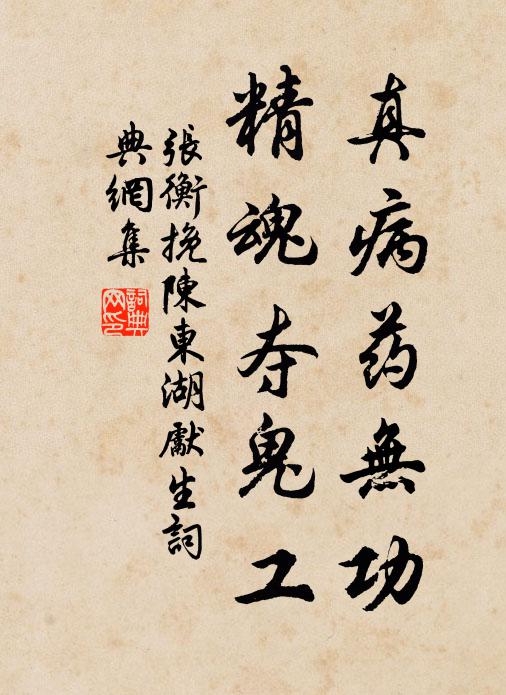 真病药無功
精魂夺鬼工
張衡挽陳東湖獻生詞
典網集
詞典网印